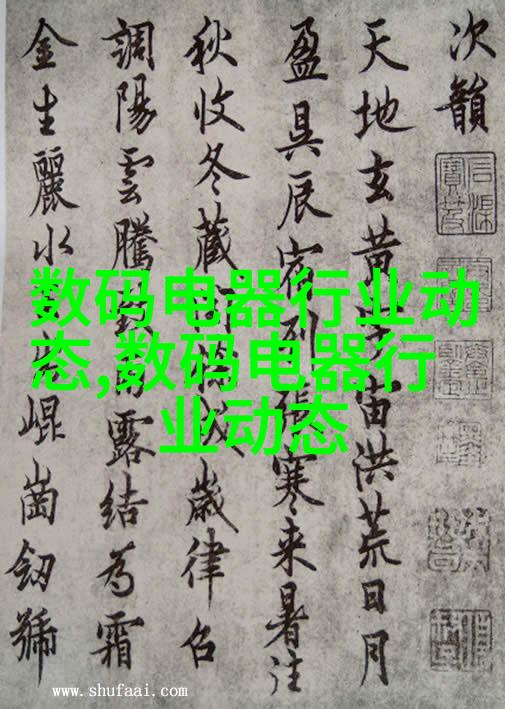 数码电器行业动
态,数码电器行
业动态
次韻
天地玄黄宇宙洪荒日月
盈昃辰宿列張寒来暑往
秋收冬藏成歲律召
調陽雲騰致雨露結為霜
金生麗水出崐崗劒號
www.shufaai.com